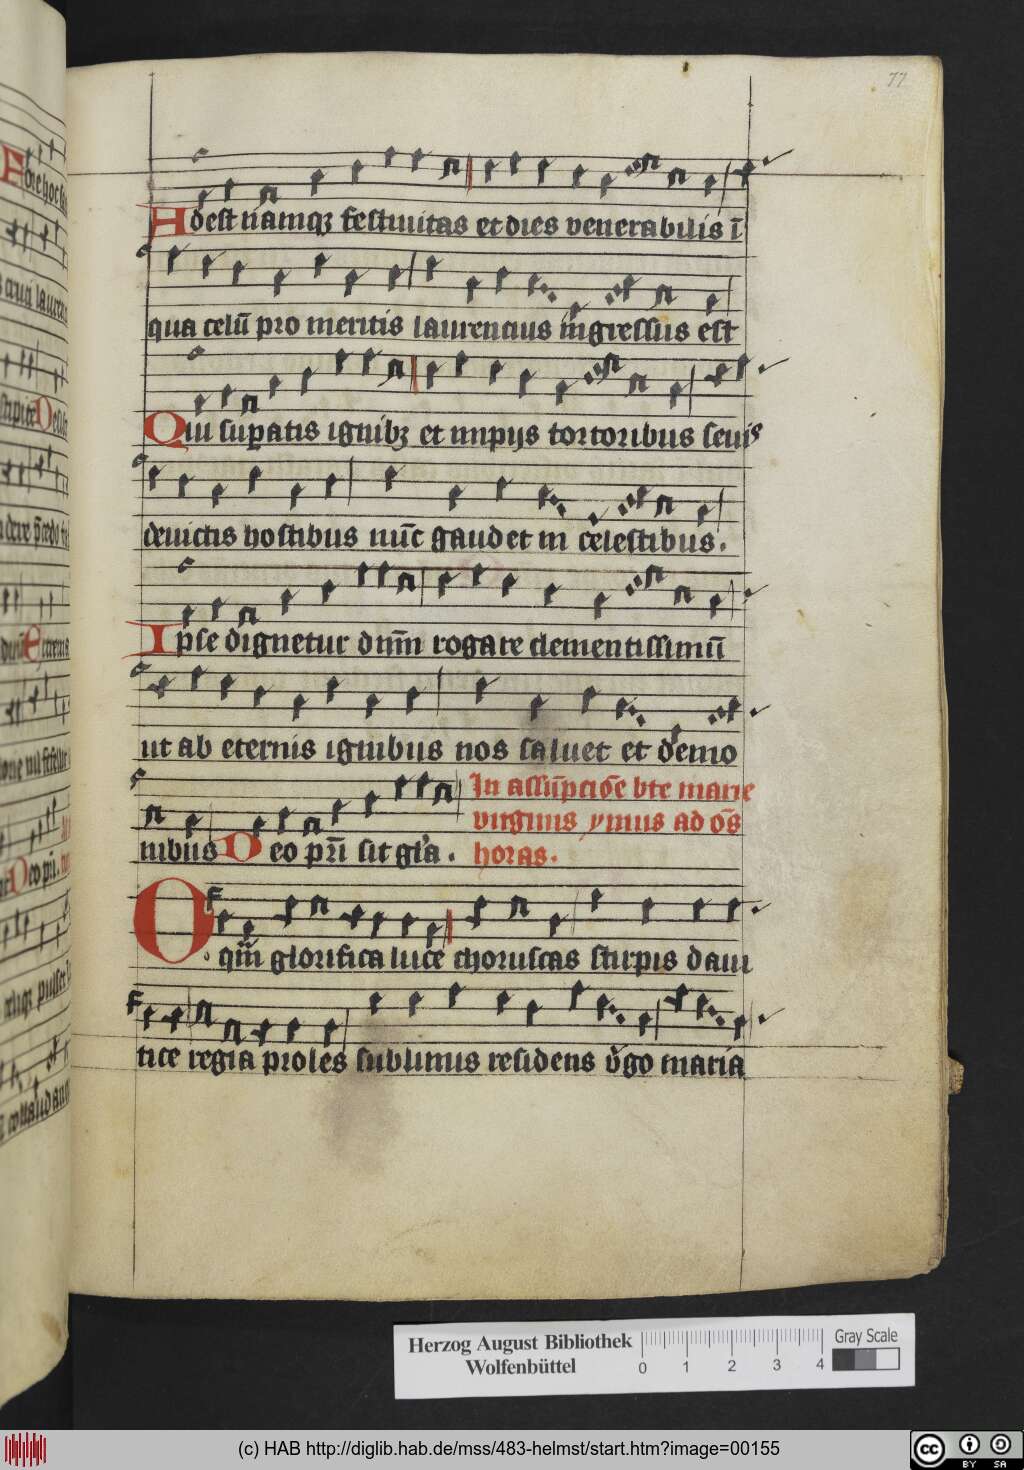 77
Adest namqꝫ festiuitas et dies venerabilis ī
qua celū pro meritis laurencius ingressus est
Qui supatis ignibꝫ et impijs tortoribus seuis
deuictis hostibus nūc gaudet in celestibus.
Ipse dignetur dnm̄ rogare clementissimū
ut ab eternis ignibus nos saluet et demo
nibus Deo pr̄i sit gl'a. In assūpciōe bte marie
virginis ymnus ad oēs
horas.
O qm̄ glorifica luce choruscas stirpis daui
tice regia proles sublimis residens v̓go maria
Herzog August Bibliothek
Wolfenbüttel
0 1 2 3 4
Gray Scale
(c) HAB http://diglib.hab.de/mss/483-helmst/start.htm?image=00155
cc BY SA